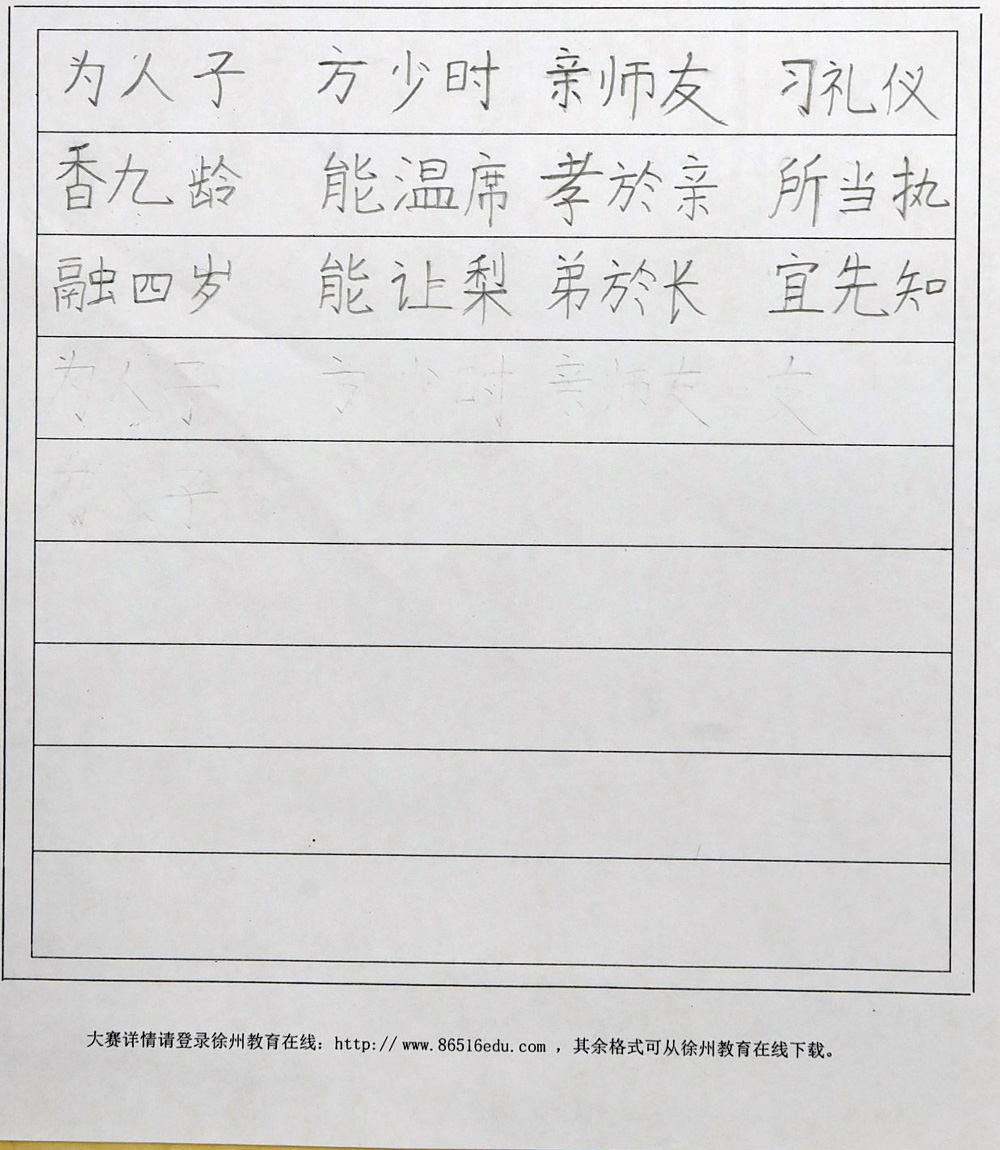 为人子 方少时 亲师友 习礼仪
香九龄 能温席 孝於亲 所当执
融四岁 能让梨 弟於长 宜先知
为人子 方少时 亲师友 友
子
大赛详情请登录徐州教育在线：http://www.86516edu.com，其余格式可从徐州教育在线下载。